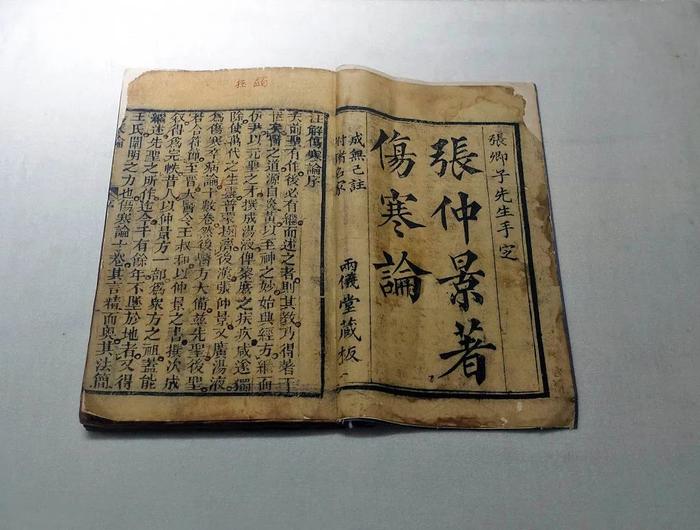 張卿子先生手定
張仲景著
傷寒論
成無己註
附諸名家
兩儀堂藏板
註解傷寒論序
夫前聖有作後必有繼而述之者則其教乃得著于
世矣醫之道源自炎黃以至神之妙始興經方繼而
伊尹以元聖之才撰成湯液俾黎庶之疾疢咸遂蠲
除使萬代之生靈普蒙拯濟後漢張仲景又廣湯液
爲傷寒卒病論十數卷然後醫方大備茲先聖後聖
若合符節至晉太醫令王叔和以仲景之書撰次成
敘得爲完帙昔人以仲景方一部爲衆方之祖蓋能
繼述先聖之所作迄今千有餘年不墜於地者又得
王氏闡明之力也傷寒論十卷其言精而奧其法簡